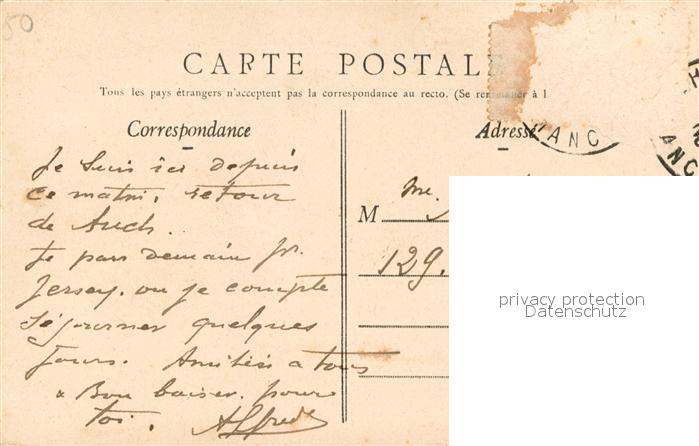 50
CARTE POSTALE
Tous les pays étrangers n'acceptent pas la correspondance au recto. (Se renseigner à l
Correspondance
Adresse
ANC
ANC
Je suis ici depuis
ce matin, retour
de Auch.
Je pars demain pr.
Jersey. ou je compte
séjourner quelques
jours. Amitiés a tous
& Bon baiser. pour
toi. Alfred
M
129.
privacy protection
Datenschutz